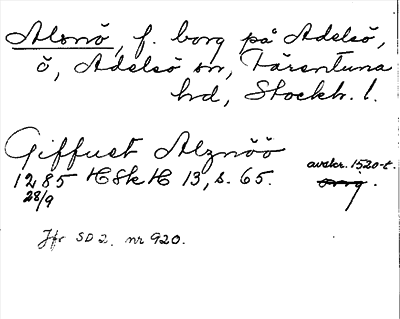 Alsnö, f. borg på Adelsö,
ö, Adelsö sn, Färentuna
hd, Stockh. l.
Giffuet Alznöö
1285 HSkH 13, s. 65. avskr. 1520-t.
28/9 orig.
Jfr SD 2. nr 920.